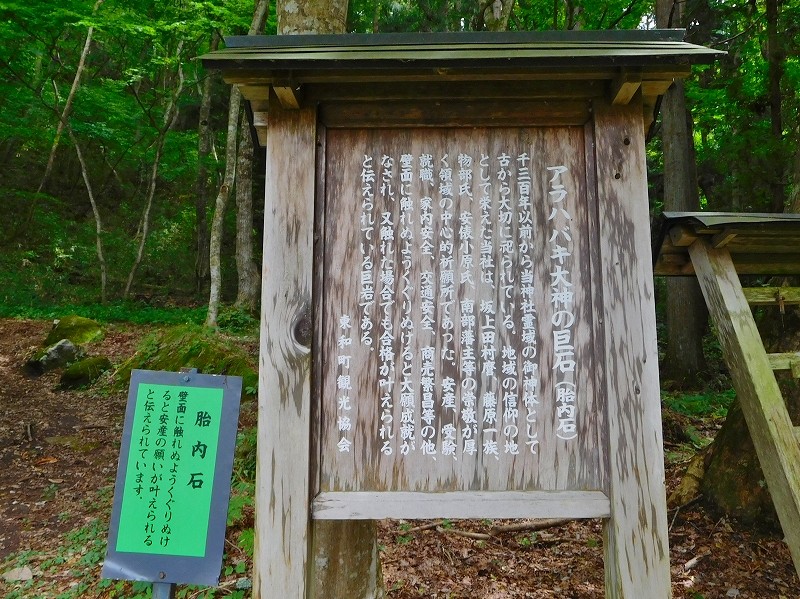 アラハバキ大神の巨石（胎内石）
千三百年以前から当神社霊域の御神体として
古から大切に祀られている。地域の信仰の地
として栄えた当社は、坂上田村麿、藤原一族、
物部氏、安俵小原氏、南部藩主等の崇敬が厚
く領域の中心的祈願所であった。安産、受験、
就職、家内安全、交通安全、商売繁昌等の他、
壁面に触れぬようくぐりぬけると大願成就が
なされ、又触れた場合でも合格が叶えられる
と伝えられている巨岩である。
東和町観光協会
胎内石
壁面に触れぬようくぐりぬけ
ると安産の願いが叶えられる
と伝えられています。